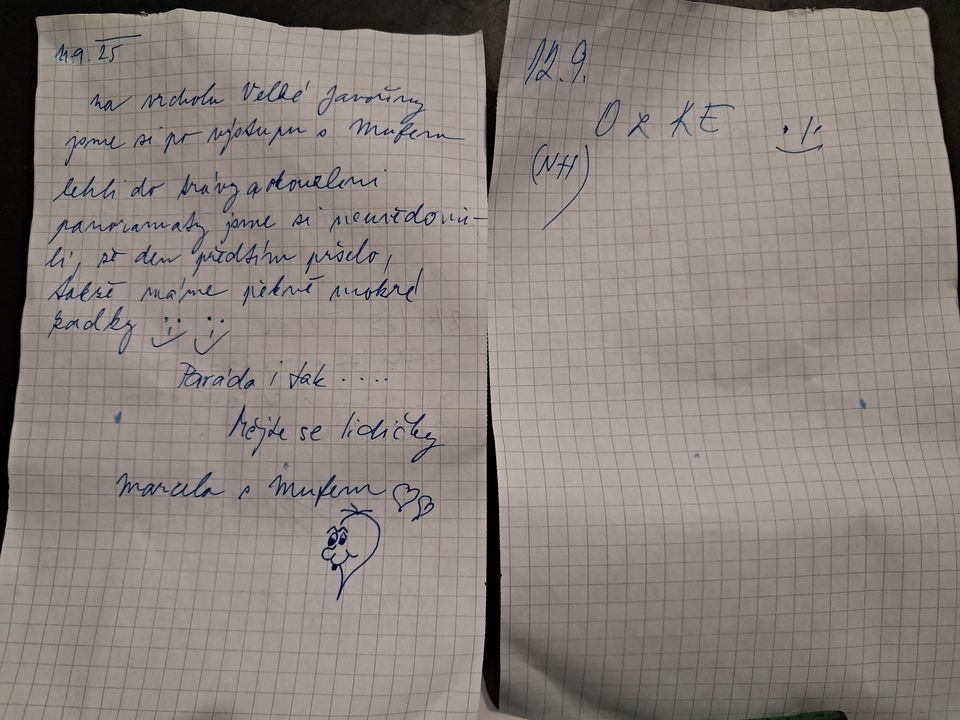 11.9. 25
na vrcholu Velké Javořiny
jsme si po výstupu s Mufem
lehli do trávy a okouzleni
panoramaty jsme si neuvědomi-
li, že den předtím pršelo,
takže máme pěkně mokré
zadky
Paráda i tak .....
Mějte se lidičky
Marcela s Mufem
12.9.
O x KE
(NH)